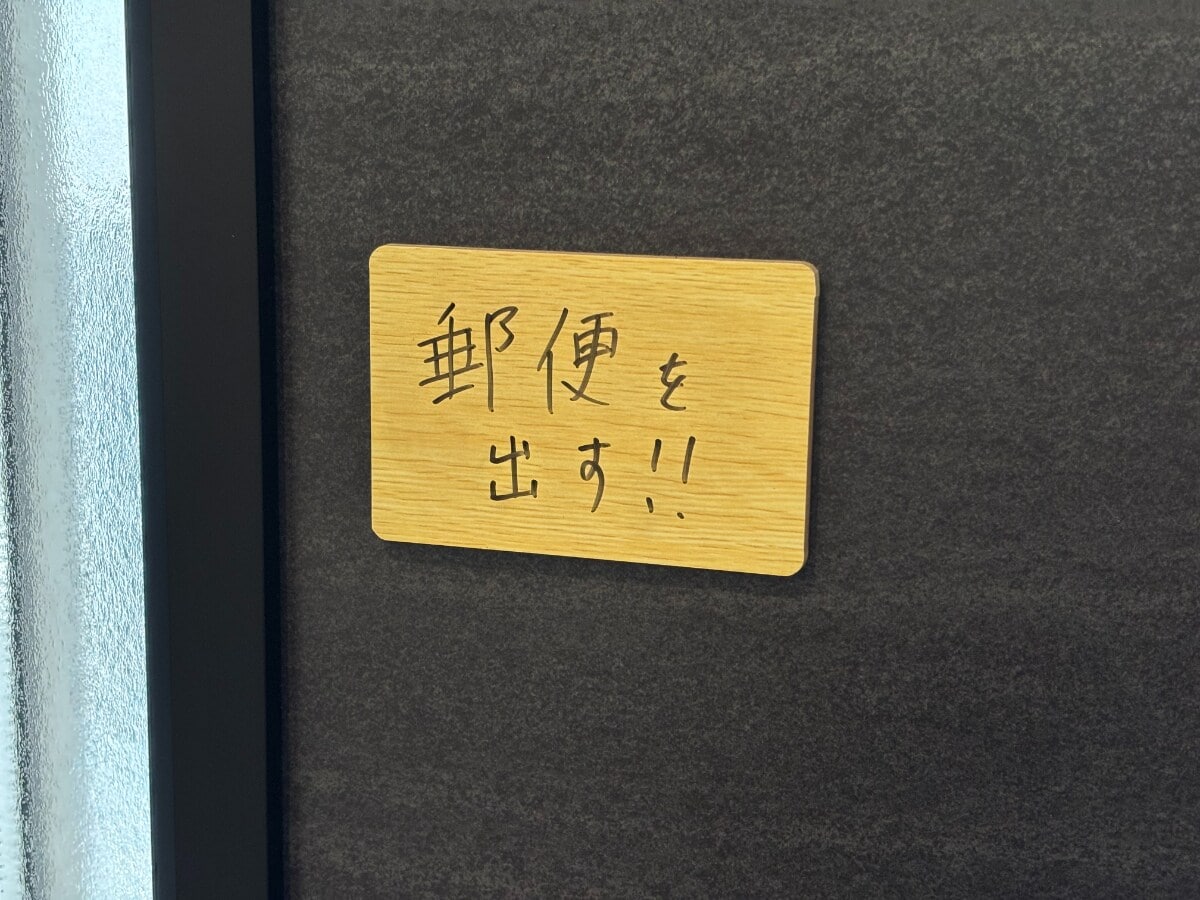 郵便を
出す!!